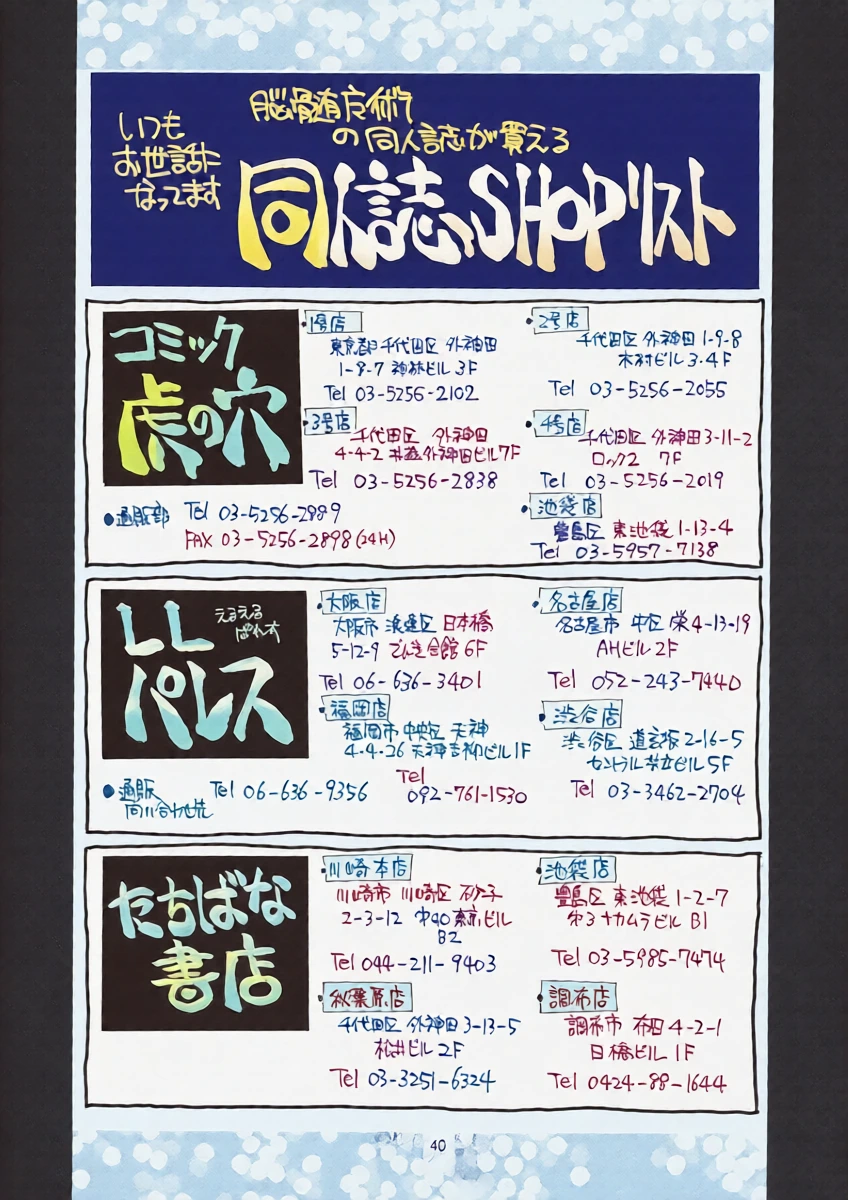 いつも
お世話に
なってます
脳髄直方術
の同人誌が買える
同人誌SHOPリスト
コミック
虎の穴
1号店
東京都千代田区 外神田
1-8-7 神林ビル 3F
Tel 03-5256-2102
2号店
千代田区 外神田 1-9-8
木村ビル 3・4F
Tel 03-5256-2055
3号店
千代田区 外神田
4-4-2 外神田ビル7F
Tel 03-5256-2838
4号店
千代田区 外神田3-11-2
ロック2 7F
Tel 03-5256-2019
●通販部 Tel 03-5256-2889
FAX 03-5256-2898(24H)
池袋店
豊島区 東池袋 1-13-4
Tel 03-5957-7138
LL
えるえる
ぱれす
パレス
大阪店
大阪市 浪速区 日本橋
5-12-9 でんき会館 6F
Tel 06-636-3401
名古屋店
名古屋市 中区 栄4-13-19
AHビル 2F
Tel 052-243-7440
福岡店
福岡市 中央区 天神
4-4-26 天神吉柳ビル1F
Tel
092-761-1530
渋谷店
渋谷区 道玄坂2-16-5
セントラル ビル 5F
Tel 03-3462-2704
●通販
問い合わせ先
Tel 06-636-9356
たちばな
書店
川崎本店
川崎市 川崎区 砂子
2-3-12 ビル
B2
Tel 044-211-9403
池袋店
豊島区 東池袋 1-2-7
第3ナカムラビル B1
Tel 03-5985-7474
秋葉原店
千代田区 外神田 3-13-5
松井ビル 2F
Tel 03-3251-6324
調布店
調布市 布田 4-2-1
日橋ビル 1F
Tel 0424-88-1644
40